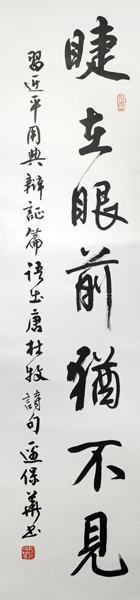 睫在眼前猶不見
習近平用典辯証篇語出唐杜牧詩句 保華书